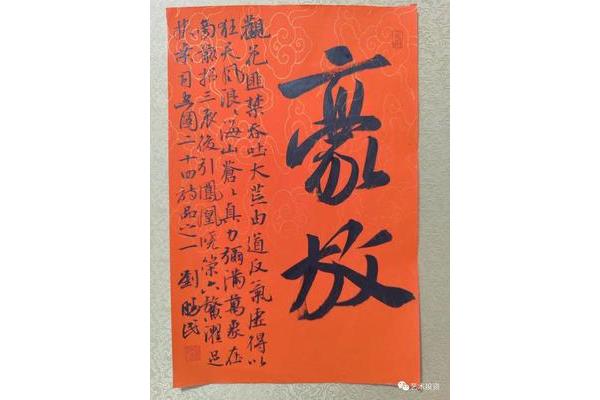 豪放
觀花匪禁吞吐大荒由道反氣虛得以
狂天風浪〻海山蒼〻真力彌滿萬象在
旁前招三辰後引鳳凰曉策六鰲濯足
扶桑司空圖二十四詩品之一 劉民
艺术投资